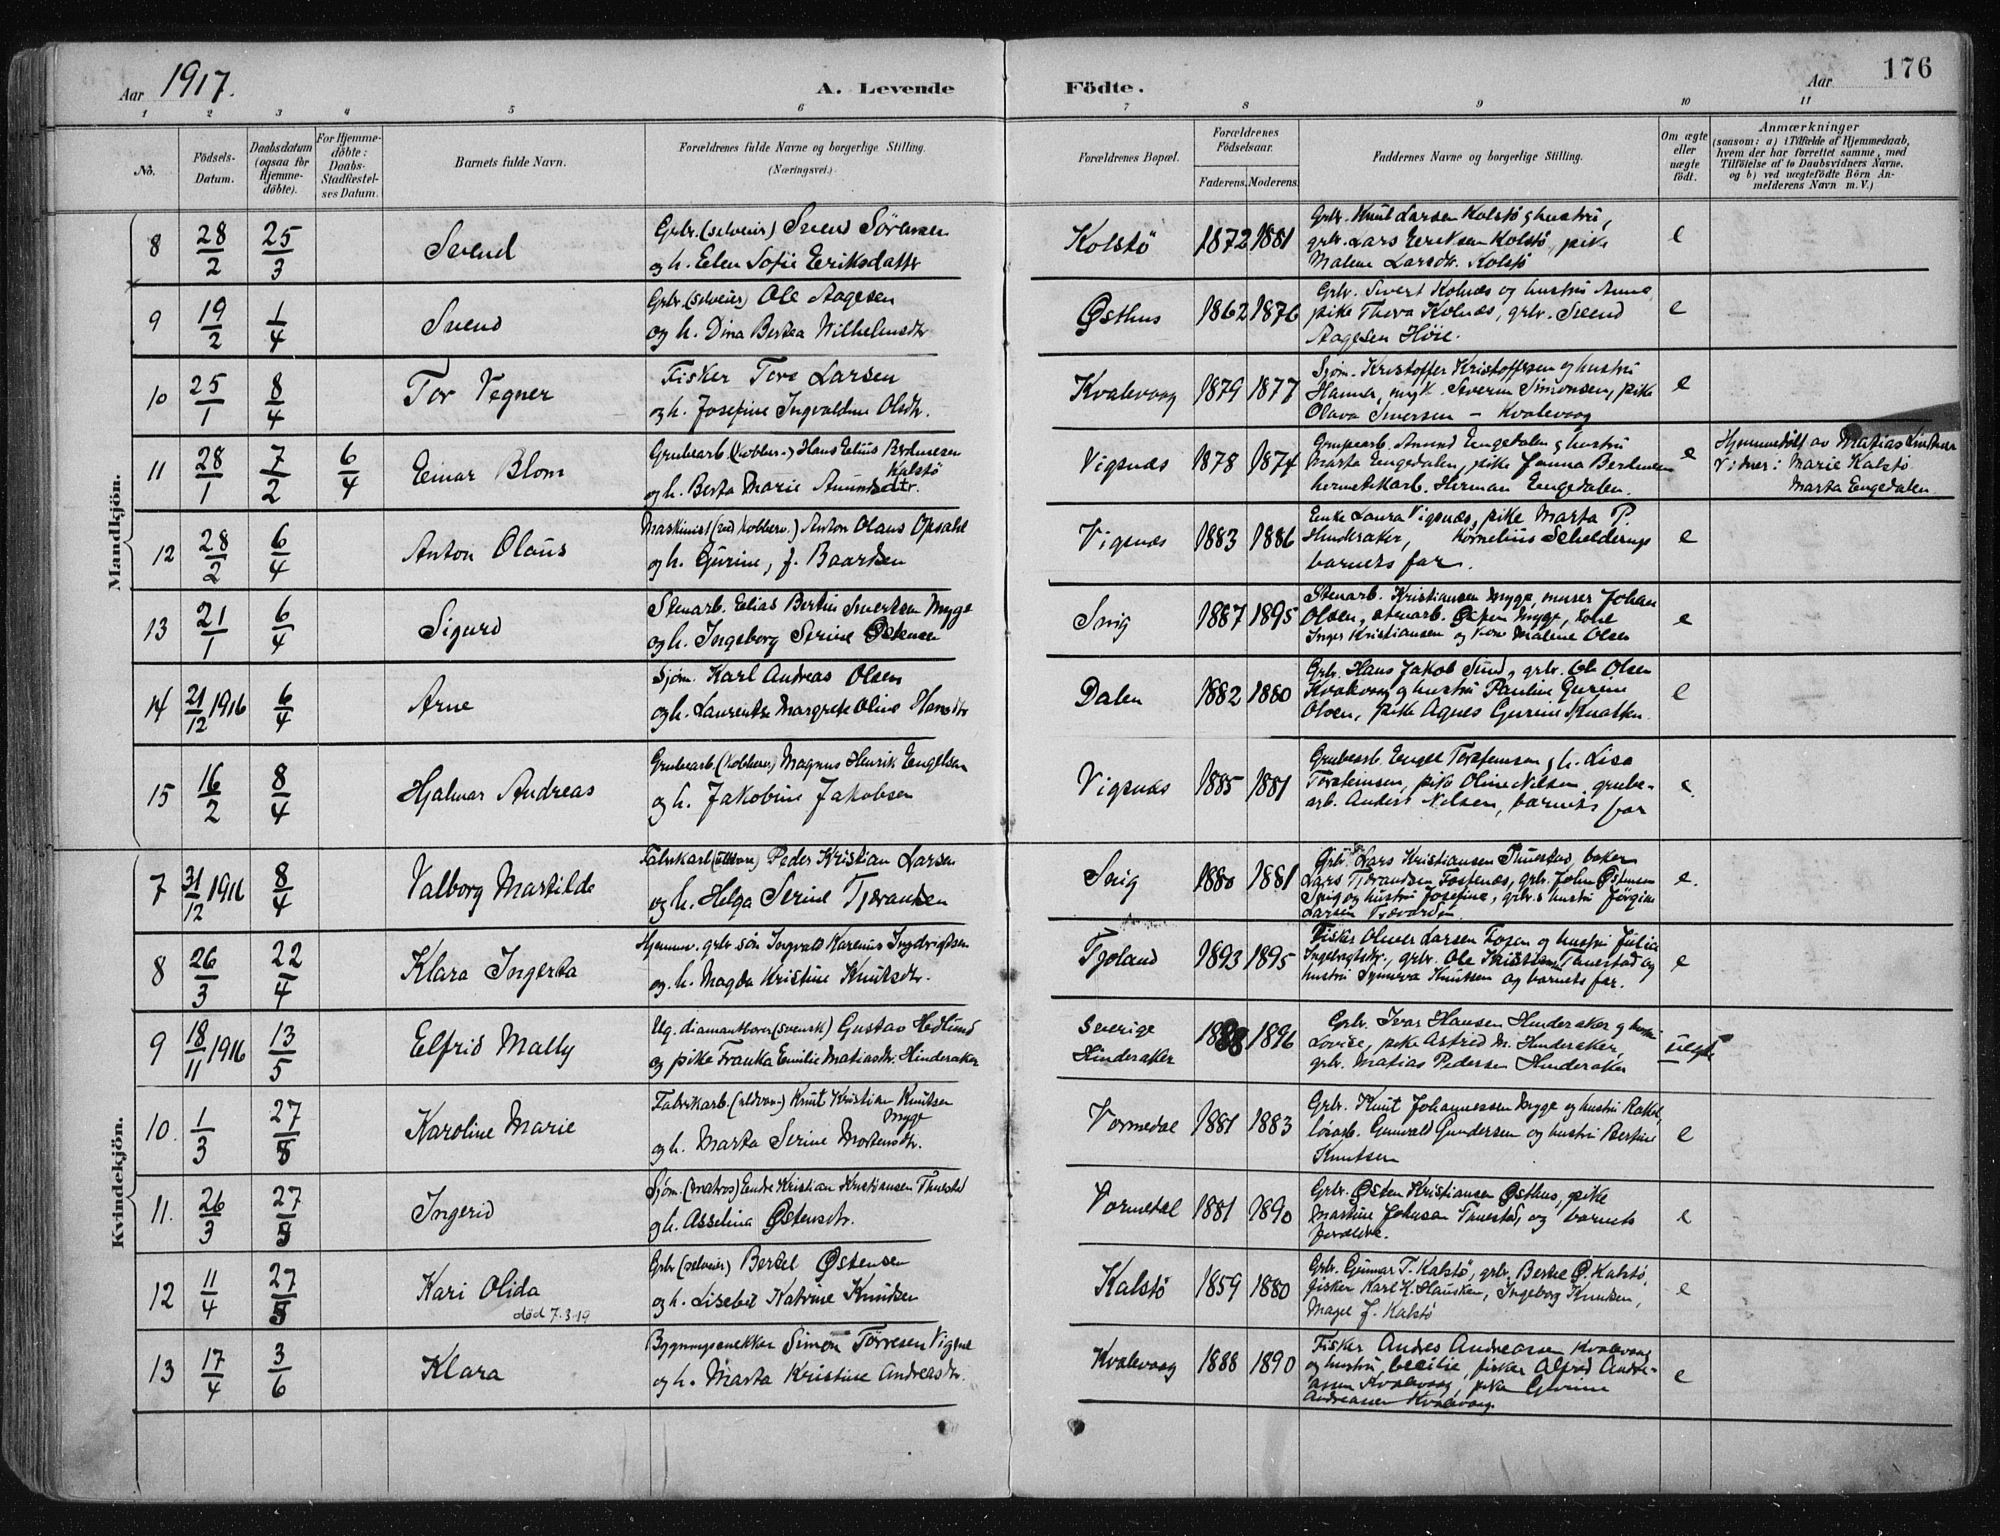 Aar 1917.
A. Levende Födte.
Aar
176
1 2 3 4 5 6 7 8 9 10 11
No.
Födsels-Datum.
Daabsdatum (ogsaa för Hjemme-döbte).
For Hjemme-döbte: Daabs-Stadfæstel-ses Datum.
Barnets fulde Navn.
Forældrenes fulde Navne og borgerlige Stilling. (Næringsvei.)
Forældrenes Bopæl.
Forældrenes Födselsaar.
Faderens. Moderens.
Faddernes Navne og borgerlige Stilling.
Om ægte eller uægte født.
Anmærkninger
(saasom: a) i Tilfælde af Hjemmedaab, hvem der har forrettet samme, med Tilföielse af to Daabsvidners Navne, og b) ved uægtefödte Börn Anmelderens Navn m. V.)
Mandkjön.
8 28/2 25/3 Svend
Grbr. (selveier) Svend Sörensen
og h. Elen Sofie Eriksdatter
Kolstö 1872 1881
Grbr. Knut Larsen Kolstö og hustru,
grbr. Lars Eriksen Kolstö, pike
Malene Larsdtr. Kolstö
e
9 19/2 1/4 Svend
Grbr. (selveier) Ole Aagesen
og h. Dina Bertea Wilhelmsdtr
Østhus 1862 1876
Grbr. Sivert Kolnæs og hustru Anna,
pike Thea Kolnæs, grbr. Svend
Aagesen Höie.
e
10 25/1 8/4 Tor Vegner
Fisker Tore Larsen
og h. Josefine Ingvaldine Olsdtr.
Kvalevaag 1879 1877
Sjöm. Kristoffer Kristoffersen og hustru
Hanna, ungk. Severin Simonsen, pike
Olava Iversen – Kvalevaag
e
11 28/1 7/2 6/4 Einar Blom
Grubearb. (kobber.) Hans Elius Berentsen Kalstö
og h. Berta Marie Amundsdtr.
Vigsnæs 1878 1874
Grubearb. Amund Engedalen og hustru
Marta Engedalen, pike Janna Berentsen
hermetikarb. Herman Engedalen.
e
Hjemmedöbt av Matias Lindtner
Vidner: Marie Kalstö
Marta Engedalen.
12 28/2 6/4 Anton Olaus
Maskinist (ved Kobberv.) Anton Olaus Opsahl
og h. Gurine, f. Baardsen
Vigsnæs 1883 1886
Enke Laura Vigsnæs, pike Marta P.
Hinderaker, Kornelius Schelderup
barnets far.
e
13 21/1 6/4 Sigurd
Stenarb. Elias Bertin Sivertsen Myge
og h. Ingeborg Serine Østensen
Snig 1887 1895
Stenarb. Kristiansen Myge, murer Johan
Olsen, stenarb. Espen Myge, kone
Inger Kristiansen og kone Malene Olsen
e
14 21/12 1916 6/4 Arne
Sjöm. Karl Andreas Olsen
og h. Laurentse Margrete Oline Hansdtr
Dalen 1882 1880
Grbr. Hans Jakob Sund, grbr. Ole Olsen
Kvalevaag og hustru Pauline Gurine
Olsen, pike Agnes Gurine Knutsen.
e
15 16/2 8/4 Hjalmar Andreas
Grubearb. (kobberv.) Magnus Henrik Engelsen
og h. Jakobine Jakobsen
Vigsnæs 1885 1881
Grubearb. Engel Torsteinsen og h. Lisa
Torsteinsen, pike Oline Nilsen, grube-
arb. Anders Nilsen, barnets far
e.
Kvindekjön.
7 31/12 1916 8/4 Valborg Martilde
Fabrikarb. (uldvare) Peder Kristian Larsen
og h. Helga Serine Tjerandsen
Snig 1880 1881
Grbr. Lars Kristiansen Thuestad, baker
Lars Tjerandsen Fosenæs, grbr. John Østensen
Snig og hustru Josefine, grbr.s hustru Jørgine
Larsen
e.
8 26/3 22/4 Klara Ingerta
Hjemmev. grbr. sön Ingvald Karenius Ingebrigtsen
og h. Magda Kristine Knutsdtr.
Tjoland 1893 1895
Fisker Oliver Larsen Fosen og hustru Julia
Ingebrigtsdtr., grbr. Ole Kristiansen Tuestad og
hustru Synneva Knutsen og barnets far.
e
9 18/11 1916 13/5 Elfrid Mally
Ug. diamantborer (svensk) Gustav Hedlund
og pike Franka Emilie Matiasdtr. Hinderaker
Sverige
Hinderaker
1888 1896
Grbr. Ivar Hansen Hinderaker og hustru
Lovise, pike Astrid M. Hinderaker,
grbr. Matias Pedersen Hinderaker
uegte
10. 1/3 27/5 Karoline Marie
Fabrikarb. (uldvar.) Knut Kristian Knutsen Myge
og h. Marta Serine Mortensdtr.
Vormedal 1881 1883
Grbr. Knut Johannessen Myge og hustru Rakel,
løsarb. Gunvald Gundersen og hustru Bertine
Knutsen
e
11. 26/3 27/5 Ingerid
Sjöm. (matros) Endre Kristian Kristiansen Thuestad
og h. Asselina Østensdtr.
Vormedal 1881 1890
Grbr. Østen Kristiansen Østhus, pike
Martine Johnsen Thuestad, og barnets
foreldre.
e
12 11/4 27/5 Kari Olida
död 7.3.19
Grbr (selveier) Bertel Østensen
og h. Lisebet Katrine Knudsen
Kalstö 1859 1880
Grbr. Gunnar T. Kalstö, grbr. Bertel Ø. Kalstö,
fisker Karl K. Hausken, Ingeborg Knudsen,
Magel J. Kalstö
e
13 17/4 3/6 Klara
Bygningssnekker Simon Torresen Vigsnæ
og h. Marta Kristine Andreasdtr.
Kvalevaag 1888 1890
Fisker Andres Andreasen Kvalevaag
og hustru Cecilie, fisker Alfred Andre-
asen Kvalevaag, pike Gurine
Andreassen Kvalevaag.
e